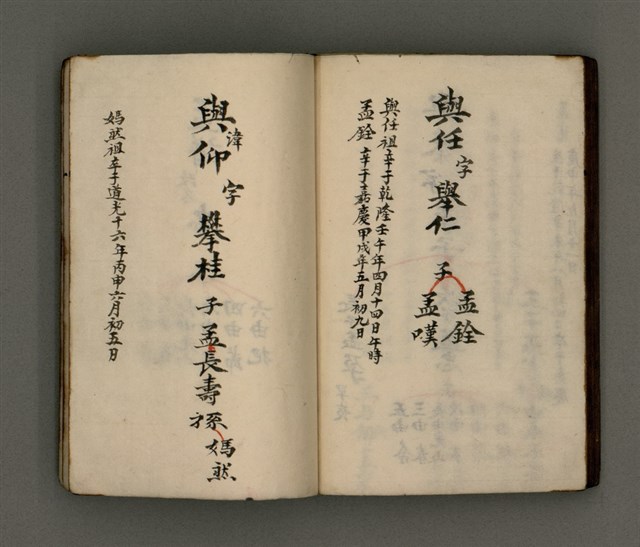 與任字舉仁子孟銓
孟嘆
與任祖卒于乾隆壬午年四月十四日午時
孟銓卒于嘉慶甲戌年五月初九日
諱
與仰字攀桂子孟長壽孫媽然
媽然祖卒于道光十六年丙申六月初五日